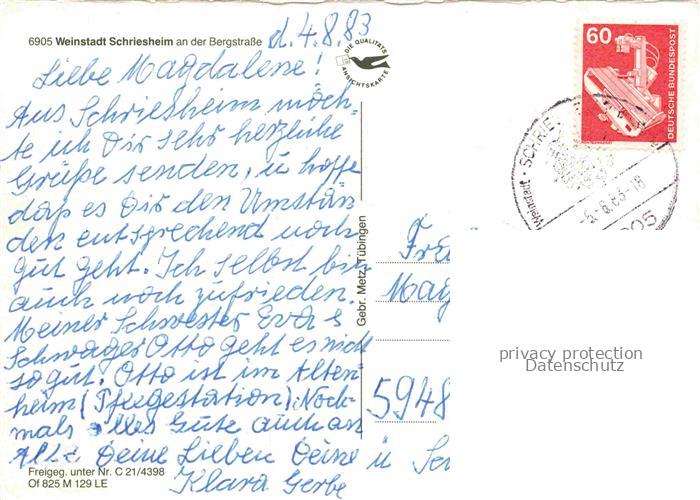 6905 Weinstadt Schriesheim an der Bergstraße
d. 4.8.83
DIE QUALITÄTS
ANSICHTSKARTE
60
DEUTSCHE BUNDESPOST
Liebe Magdalene!
Aus Schriesheim möch-
te ich Dir sehr herzliche
Grüße senden, u hoffe
daß es Dir den Umstän
den entsprechend noch
gut geht. Ich selbst bin
auch noch zufrieden.
Meiner Schwester Eva &
Schwager Otto geht es nicht
so gut. Otto ist im Alten-
heim (Pflegestation). Noch-
mals alles Gute auch an
Alle Deine Lieben Deine
Klara Gerbe
Gebr. Metz, Tübingen
Weinstadt · SCHRIE
-5.8.83-18
6905
Mag
5948
u
privacy protection
Datenschutz
Freigeg. unter Nr. C 21/4398
Of 825 M 129 LE